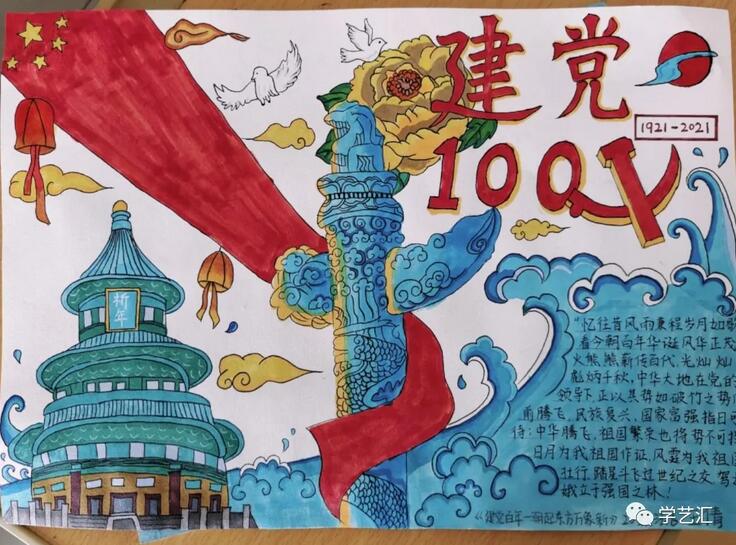 建党
100
1921-2021
祈年
"忆往昔风雨兼程岁月如歌
看今朝百年华诞风华正茂
火熊熊薪传百代,光灿灿
彪炳千秋,中华大地在党的
领导下,正以其势如破竹之势
甫腾飞,民族复兴,国家富强指日可
待;中华腾飞,祖国繁荣也将势不可挡
日月为我祖国作证,风雲为我祖国
壮行,踏星斗飞过世纪之交,驾
娥立于强国之林!
《建党百年一朝起东方万象新》
学艺汇